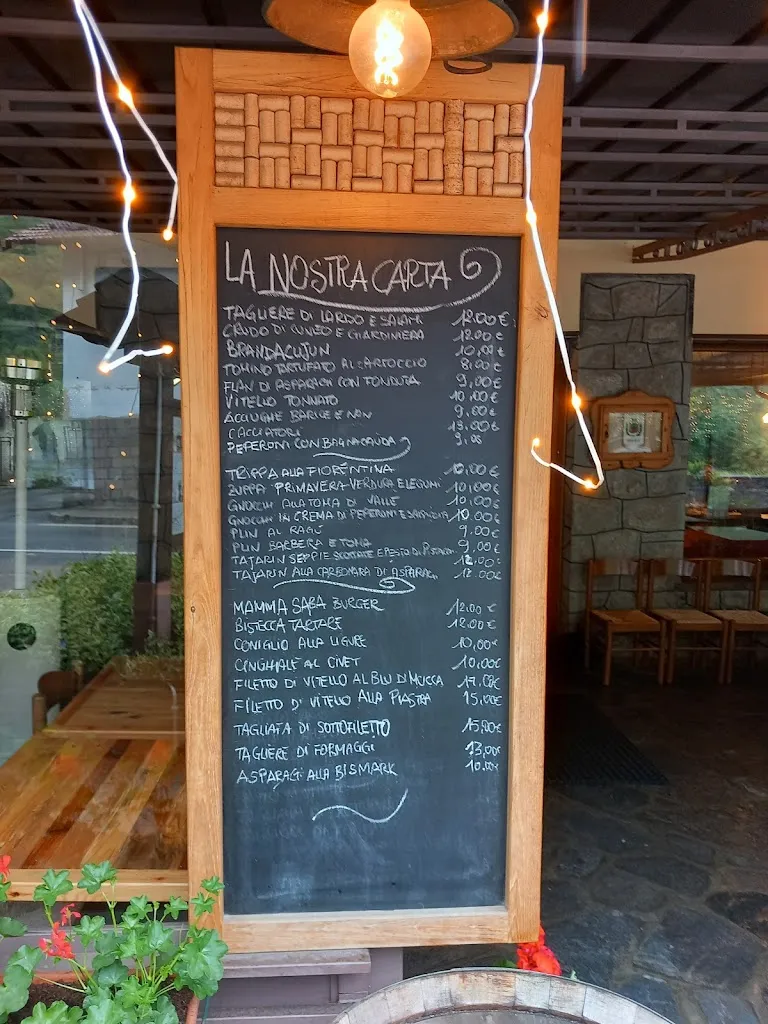 LA NOSTRA CARTA
TAGLIERE DI LARDO E SALAMI 12.00 €
CRUDO DI CUNEO E GIARDINIERA 12.00 €
BRANDACUJUN 10,00 €
TOMINO TARTUFATO AL CARTOCCIO 8,00 €
FLAN DI ASPARAGI CON FONDUTA 9,00 €
VITELLO TONNATO 10,00 €
ACCIUGHE BARICE E NON 9,00 €
CACCIATORI 13.00 €
PEPERONI CON BAGNACAUDA 9,00
TRIPPA ALLA FIORENTINA 10,00 €
ZUPPA PRIMAVERA VERDURA E LEGUMI 10,00 €
GNOCCHI ALLA TOMA DI VALLE 10,00 €
GNOCCHI IN CREMA DI PEPERONI E SALSICCIA 10.00 €
PLIN AL RAGÙ 9,00 €
PLIN BARBERA E TOMA 9,00 €
TAJARIN SEPPIE SCOTTATE E PESTO DI 12,00 €
TAJARIN ALLA CARBONARA DI ASPARAGI 12.00 €
MAMMA SABA BURGER 12,00 €
BISTECCA TARTARE 12.00 €
CONIGLIO ALLA LIGURE 10,00 €
CINGHIALE AL CIVET 10,00 €
FILETTO DI VITELLO AL BLU DI MUCCA 17,00 €
FILETTO DI VITELLO ALLA PIASTRA 15,00 €
TAGLIATA DI SOTTOFILETTO 15,00 €
TAGLIERE DI FORMAGGI 13,00 €
ASPARAGI ALLA BISMARK 10.00 €